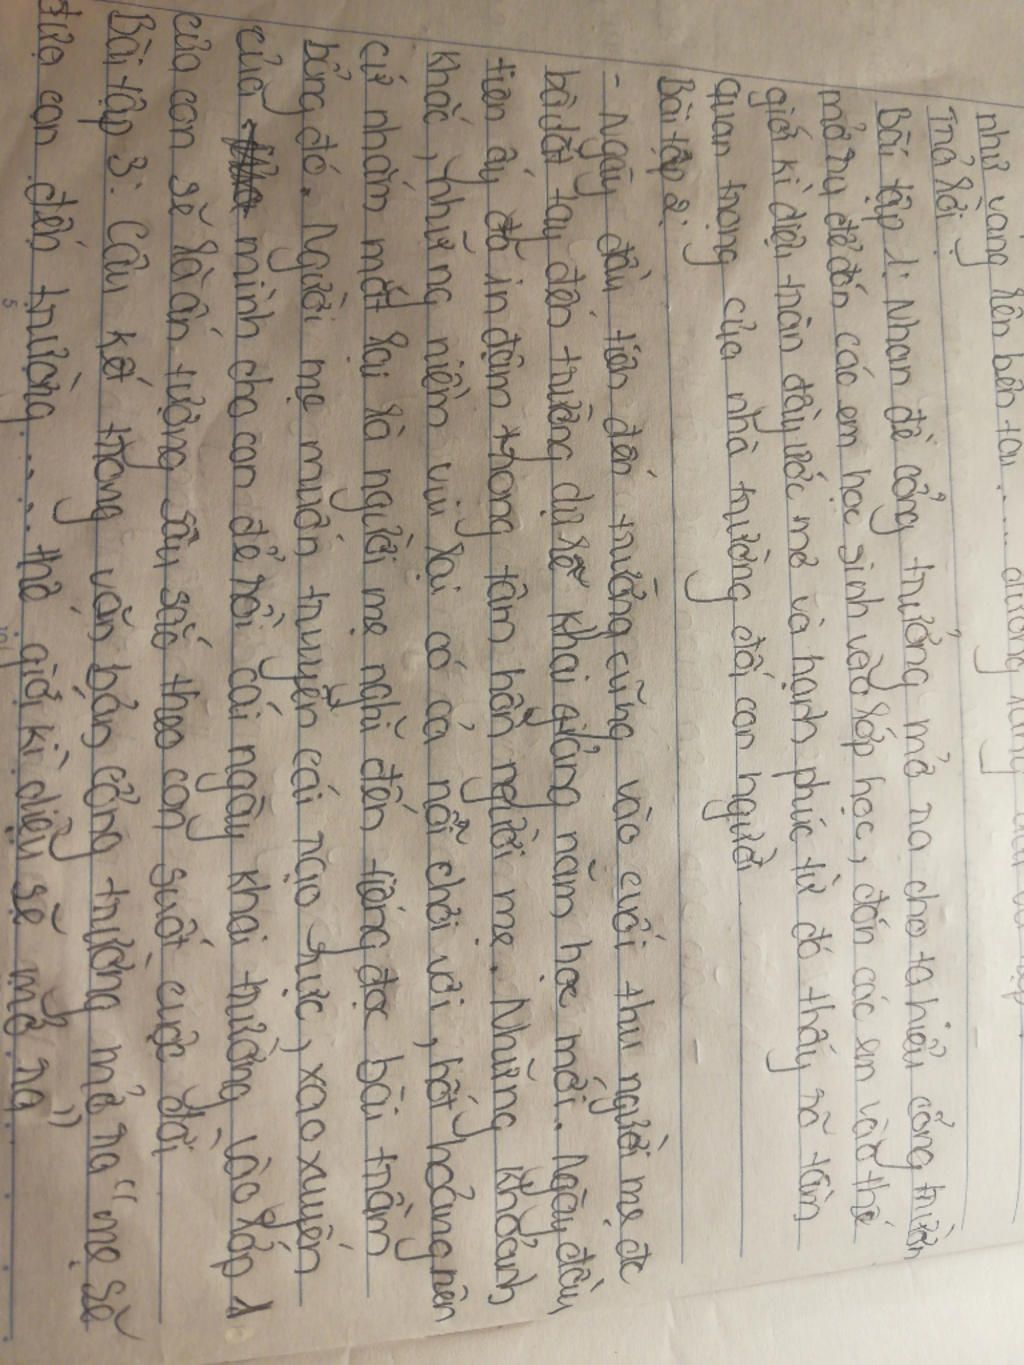 như vang lên bên tai..... đường
Trả lời
Bài tập 1: Nhan đề cổng trường mở ra cho ta hiểu cổng trường
mở ra để đón các em học sinh vào lớp học, đón các em vào thế
giới kì diệu tràn đầy ước mơ và hạnh phúc từ đó thấy rõ tầm
quan trọng của nhà trường đối con người
Bài tập 2:
- Ngày đầu tiên đến trường cũng vào cuối thu người mẹ đc
bà dắt tay đến trường dự lễ khai giảng năm học mới. Ngày đầu
tiên ấy đã in đậm trong tâm hồn người mẹ. Những khoảnh
khắc, những niềm vui lại có cả nỗi chơi vơi, hốt hoảng nên
cứ nhắm mắt lại là người mẹ nghĩ đến tiếng đọc bài trầm
bổng đó. Người mẹ muốn truyền cái rạo rực, xao xuyến
của mình cho con để rồi cái ngày khai trường vào lớp 1
của con sẽ là ấn tượng sâu sắc theo con suốt cuộc đời
Bài tập 3: Câu kết trong văn bản cổng trường mở ra "mẹ sẽ
đưa con đến trường..... thế giới kì diệu sẽ mở ra"